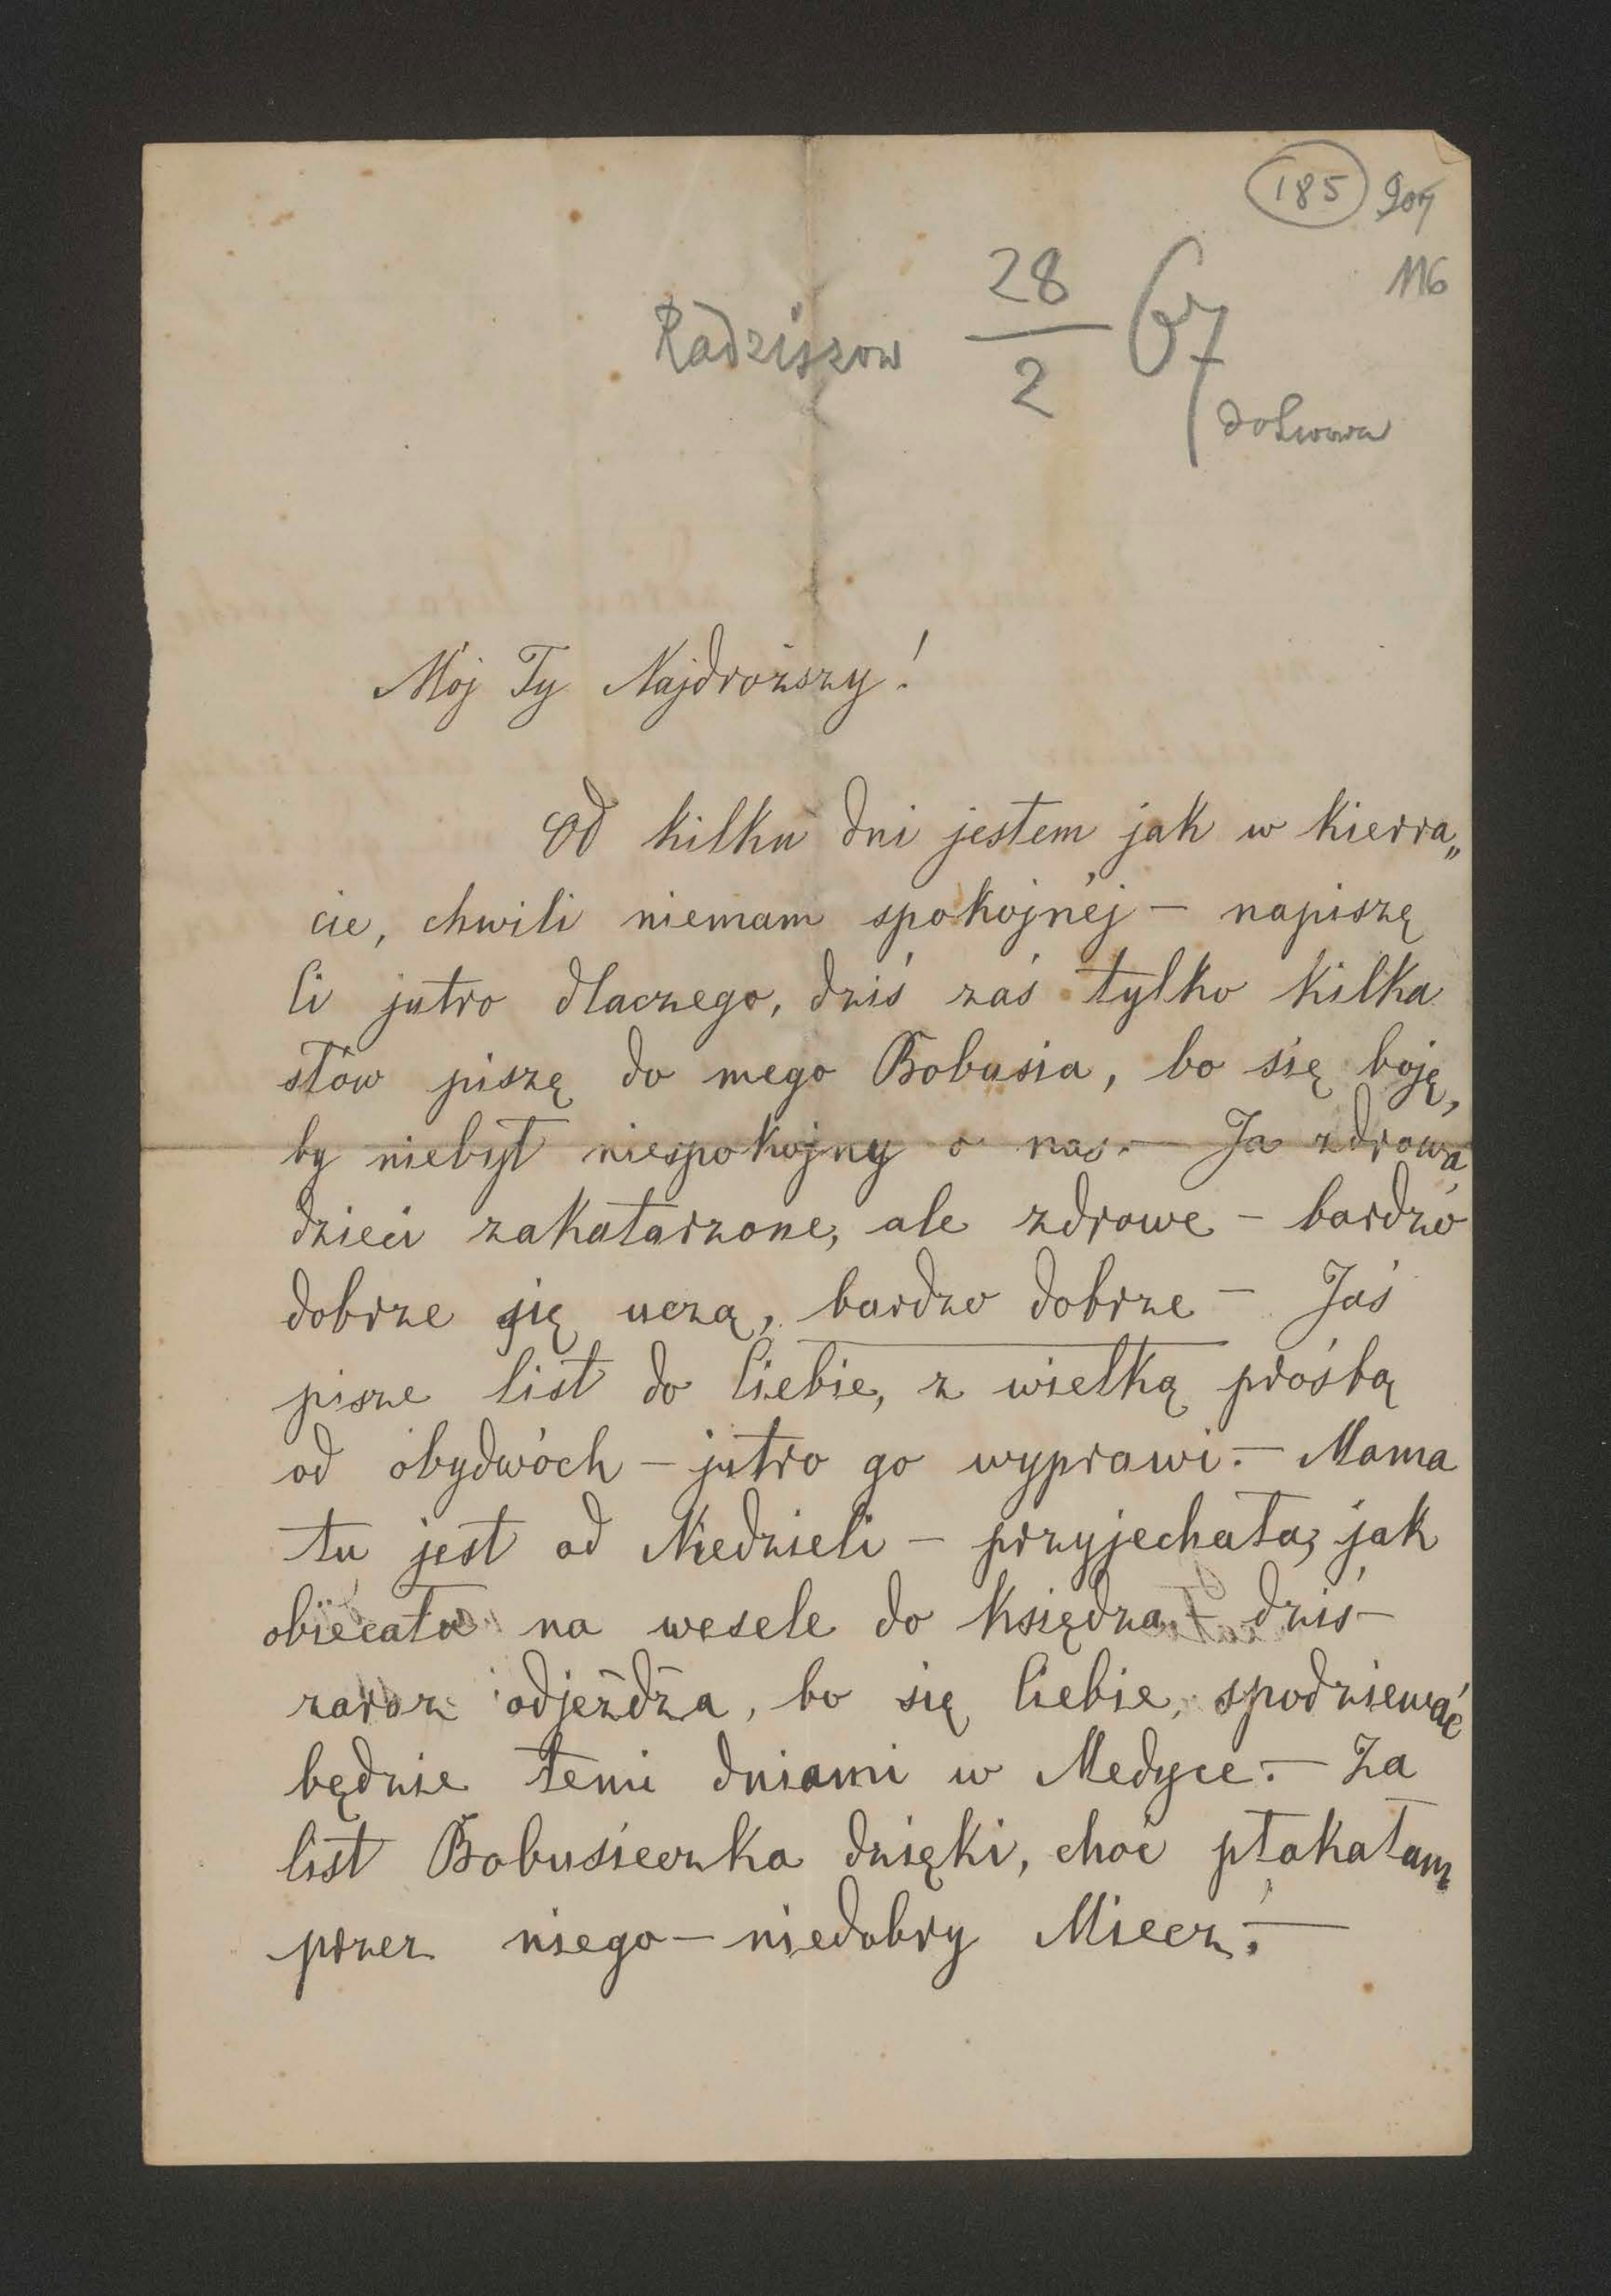 185 207
116
Radziszow 28/2 67
do Lwowa
Mój Ty Najdroższy!
Od kilku dni jestem jak w kierra„
cie, chwili niemam spokojnéj – napiszę
Ci jutro dlaczego, dziś zaś tylko kilka
słów piszę do mego Bobusia, bo się boję,
by niebył niespokojny o nas. – Ja zdrowa,
dzieci zakatarzone, ale zdrowe – bardzo
dobrze się uczą, bardzo dobrze – Jaś
pisze list do Ciebie, z wielką prośbą
od obydwóch – jutro go wyprawi. – Mama
tu jest od Niedzieli – przyjechała, jak
obiecała na wesele do Księdza – dziś
zaraz odjeżdża, bo się Ciebie, spodziewać
będzie temi dniami w Medyce. – Za
list Bobusieczka dzięki, choć płakałam
przez niego – niedobry Miecz. –